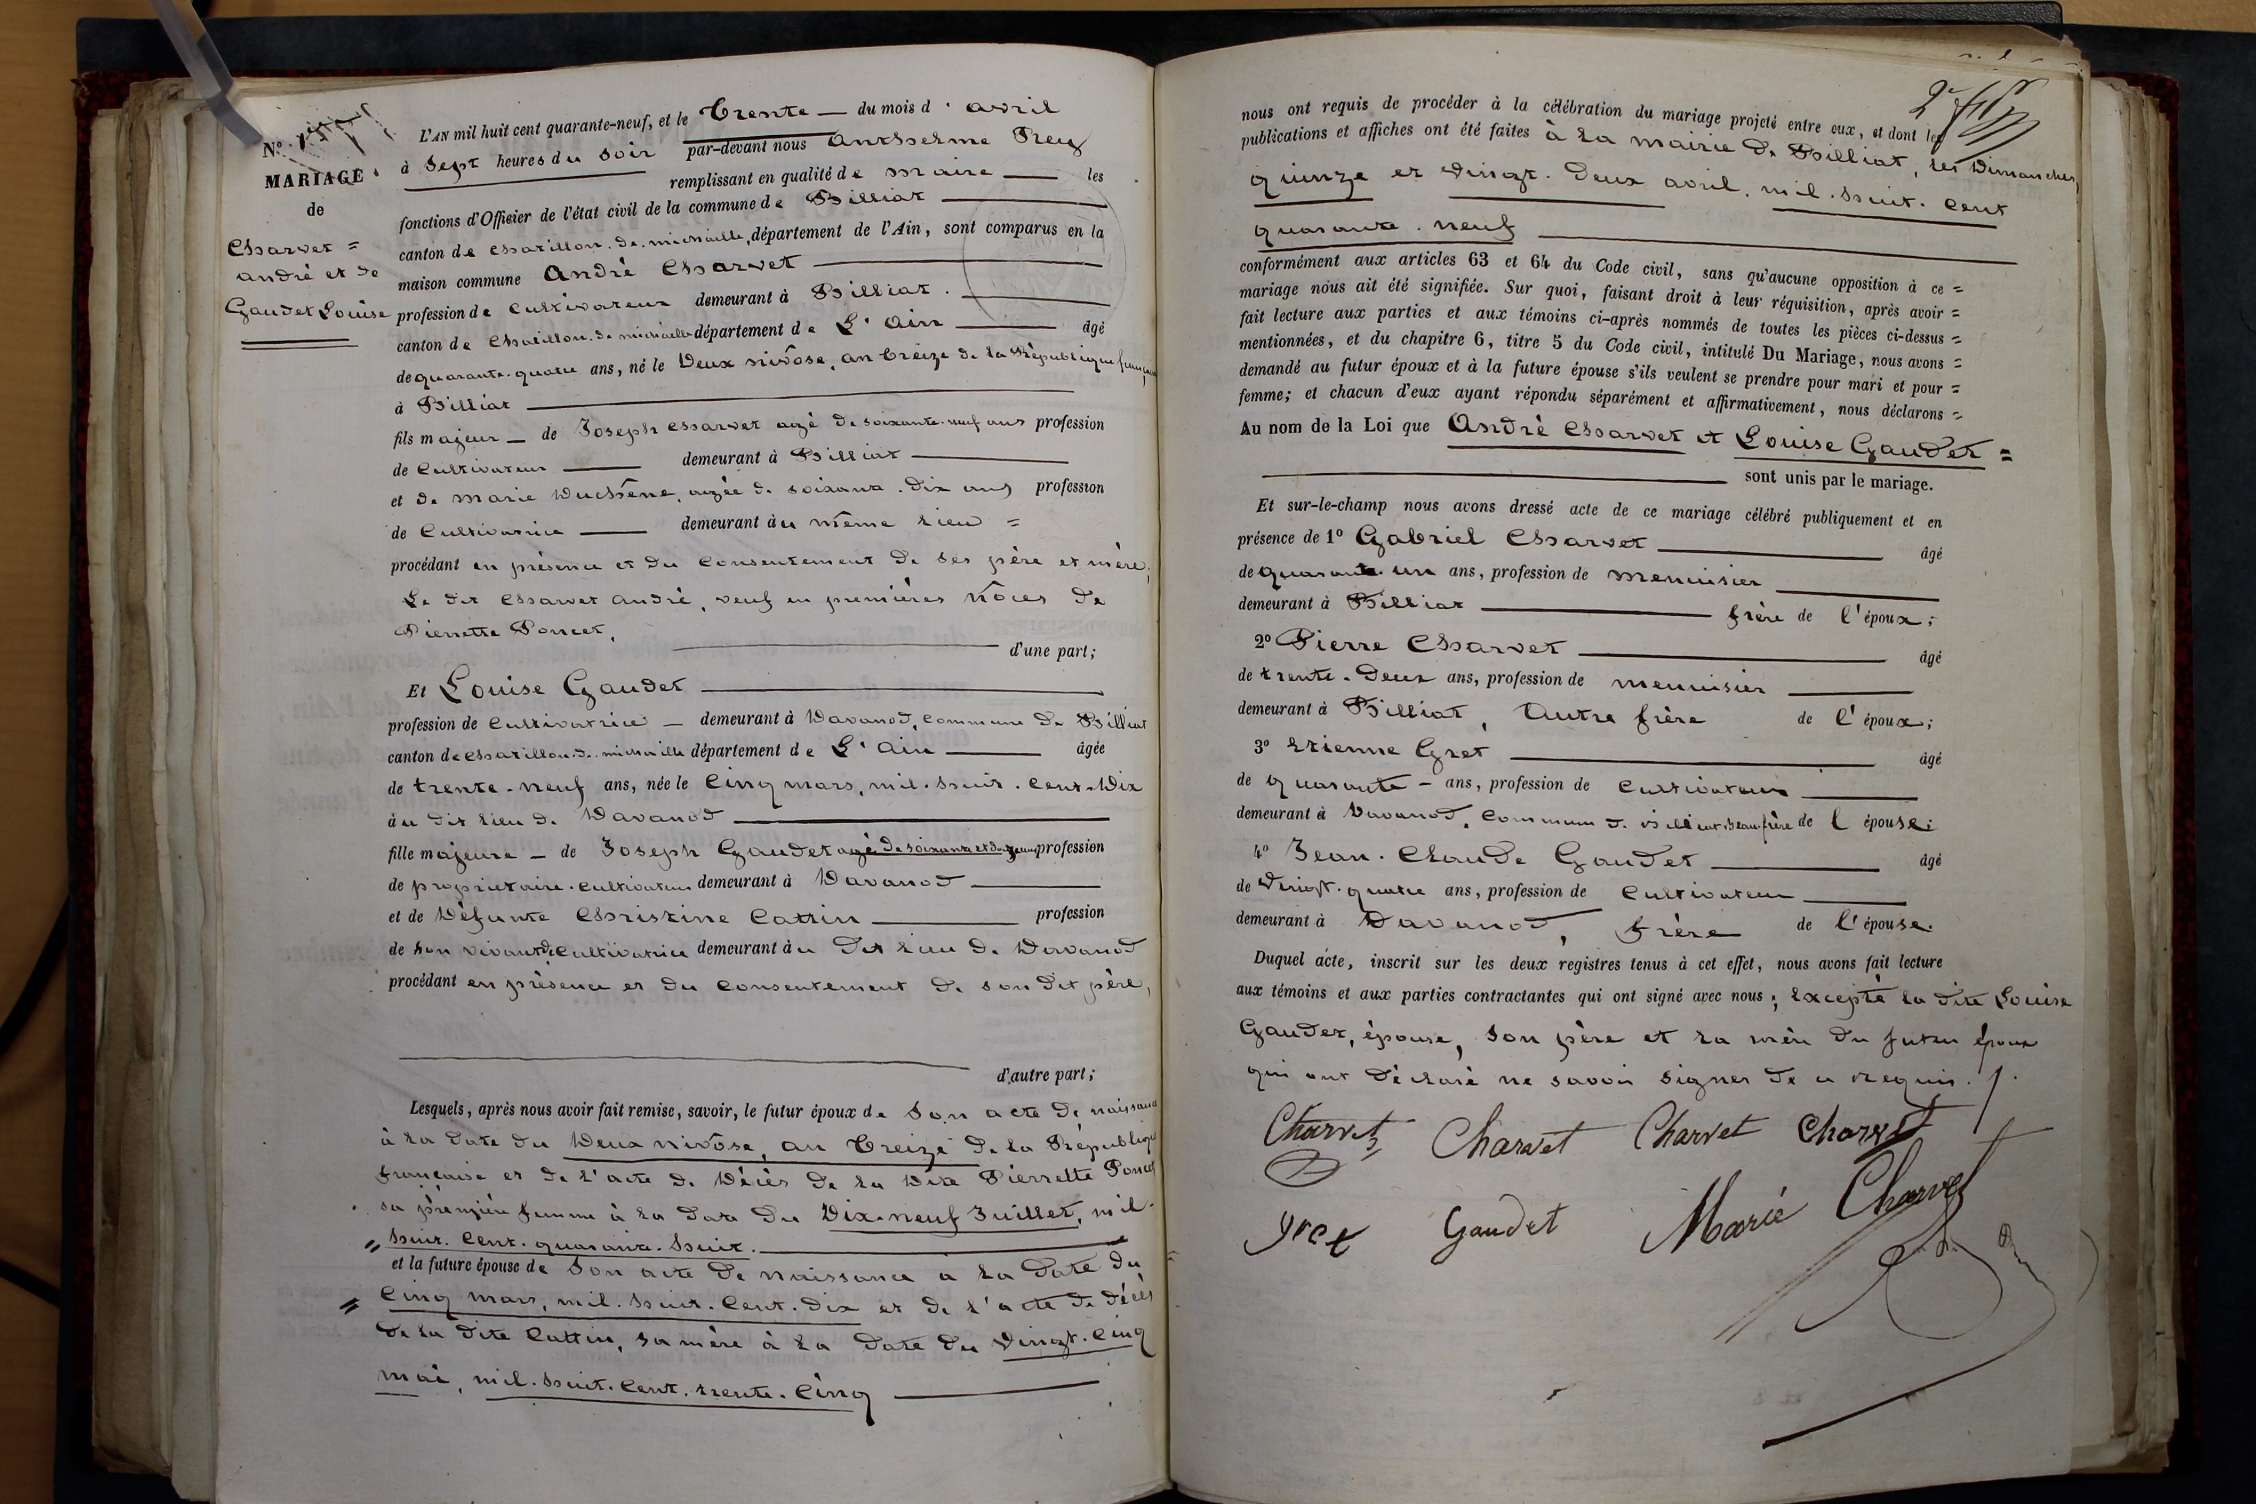 Nº
MARIAGE
de
Charvet =
André et de
Gaudet Louise
L'AN mil huit cent quarante-neuf, et le Trente du mois d'avril
à Sept heures du Soir par-devant nous Anthelme Rey
remplissant en qualité de maire les
fonctions d'Officier de l'état civil de la commune de Billiat
canton de Chatillon. de. michaille, département de l'Ain, sont comparus en la
maison commune André Charvet
profession de cultivateur demeurant à Billiat.
canton de Chatillon. de michaille département de L'Ain âgé
de quarante. quatre ans, né le Deux nivôse, an treize de la République française
à Billiat
fils majeur de Joseph Charvet agé de soixante. neuf ans profession
de Cultivateur demeurant à Billiat
et de marie Duchêne, agée de soixante. dix ans profession
de Cultivatrice demeurant àu même lieu =
procédant en présence et du consentement de ses père et mère;
Le dit Charvet André, veuf en premières nôces de
Pierrette Poncet,
d'une part;
Et Louise Gaudet
profession de Cultivatrice demeurant à Davanod, commune de Billiat
canton de Chatillon. de. michaille département de L'Ain âgée
de trente-neuf ans, née le Cinq mars, mil. huit. cent. Dix
àu dit lieu de Davanod
fille majeure de Joseph Gaudet agé de soixante et douze ans profession
de propriétaire. cultivateur demeurant à Davanod
et de Défunte Christine Cattin profession
de Son vivant de Cultivatrice demeurant àu dit lieu de Davanod
procédant en présence et du consentement de son dit père,
d'autre part;
Lesquels, après nous avoir fait remise, savoir, le futur époux de Son acte de naissance
à la date du Deux nivôse, an Treize de la République
française et de l'acte de Décès de la Dite Pierrette Poncet
sa première femme à la date du Dix-neuf Juillet, mil.
huit. Cent. quarante. huit.
et la future épouse de Son acte de naissance à la date du
Cinq mars, mil. huit. Cent. dix et de l'acte de décès
de la dite Cattin, sa mère à la date du vingt. cinq
mai, mil. huit. Cent. trente. Cinq
nous ont requis de procéder à la célébration du mariage projeté entre eux, et dont les
publications et affiches ont été faites à la mairie de Billiat, les Dimanches
quinze et vingt. Deux avril, mil. huit. Cent
quarante. neuf
conformément aux articles 63 et 64 du Code civil, sans qu'aucune opposition à ce =
mariage nous ait été signifiée. Sur quoi, faisant droit à leur réquisition, après avoir =
fait lecture aux parties et aux témoins ci-après nommés de toutes les pièces ci-dessus =
mentionnées, et du chapitre 6, titre 5 du Code civil, intitulé Du Mariage, nous avons =
demandé au futur époux et à la future épouse s'ils veulent se prendre pour mari et pour =
femme; et chacun d'eux ayant répondu séparément et affirmativement, nous déclarons =
Au nom de la Loi que André Charvet et Louise Gaudet =
sont unis par le mariage.
Et sur-le-champ nous avons dressé acte de ce mariage célébré publiquement et en
présence de 1º Gabriel Charvet âgé
de quarante. un ans, profession de menuisier
demeurant à Billiat frère de l'époux;
2º Pierre Charvet âgé
de trente. Deux ans, profession de menuisier
demeurant à Billiat, Autre frère de l'époux;
3º Etienne Gret âgé
de quarante ans, profession de Cultivateur
demeurant à Davanod, Commune de Billiat, beau-frère de l'épouse;
4º Jean. Claude Gaudet âgé
de vingt. quatre ans, profession de Cultivateur
demeurant à Davanod, frère de l'épouse.
Duquel acte, inscrit sur les deux registres tenus à cet effet, nous avons fait lecture
aux témoins et aux parties contractantes qui ont signé avec nous; excepté la dite Louise
Gaudet, épouse, son père et la mère du futur époux
qui ont déclaré ne savoir signer de ce requis.
Charvet Charvet Charvet Charvet
gret Gaudet Marie Charvet